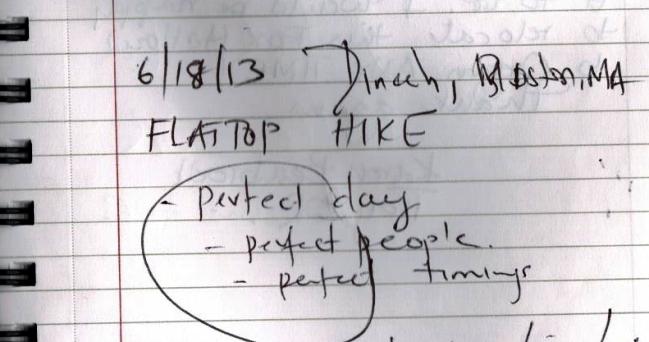 6/18/13 Dinesh, Boston, MA
FLATTOP HIKE
- perfect day
- perfect people.
- perfect timings